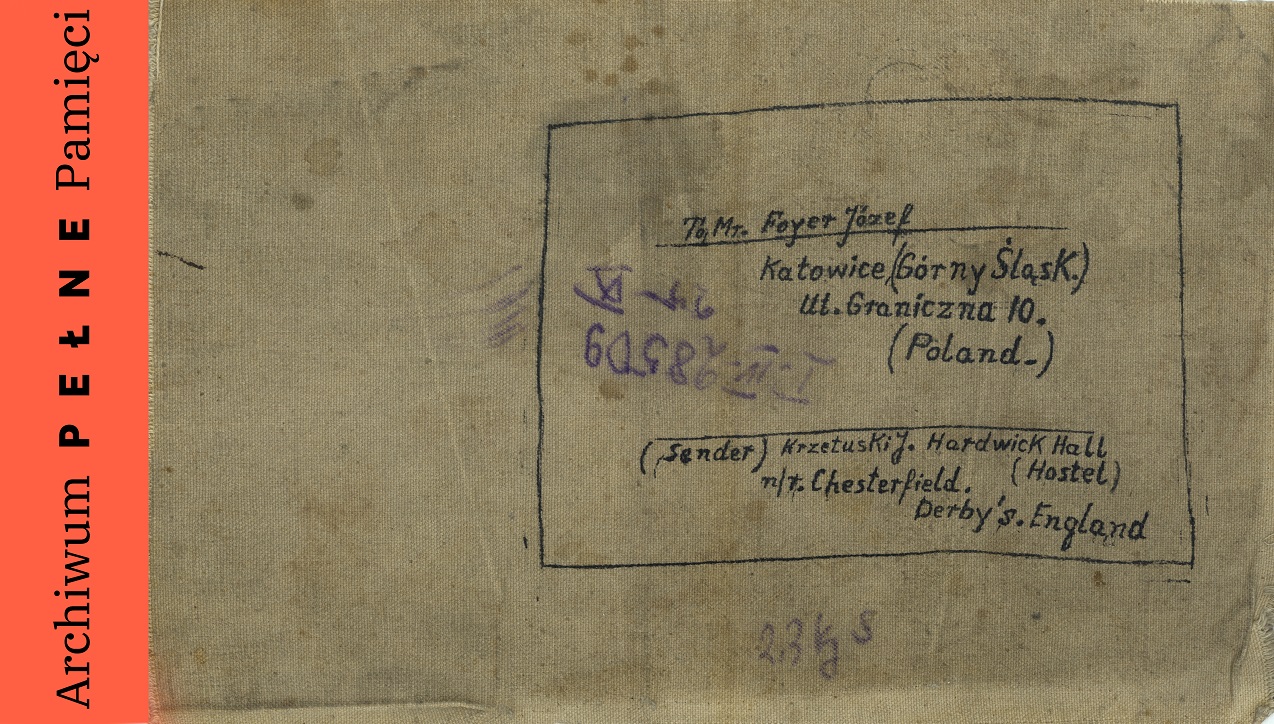 Archiwum PEŁNE Pamięci
To, Mr. Foyer Józef
Katowice, (Górny Śląsk.)
Ul. Graniczna 10.
(Poland-)
(Sender) Krzetuski J. Hardwick Hall
(Hostel)
n/r. Chesterfield.
Derby's. England